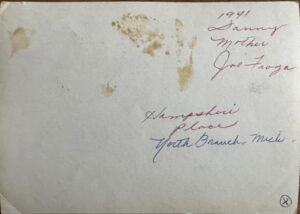 1941
Danny
Mother
Joe Fraga
Hampshire
Place
North Branch, Mich.